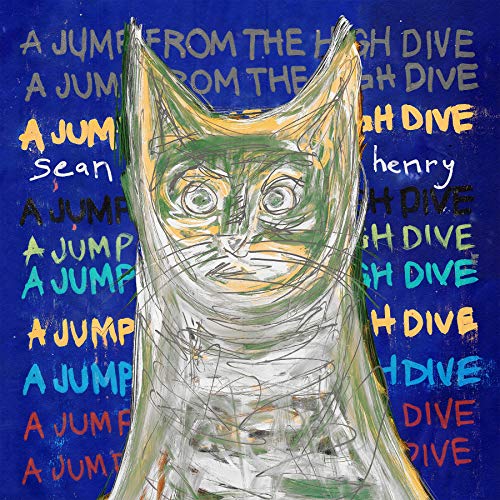 A JUMP FROM THE HIGH DIVE
A JUMP FROM THE HIGH DIVE
A JUM GH DIVE
sean henry
A JUMP H DIVE
A JUMP GH DIVE
A JUMP H DIVE
A JUMP H DIVE
A JUMP H DIVE
A JUMP H DIVE
A JUMP DIVE